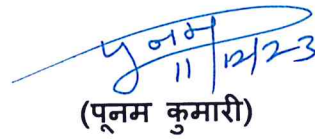 पूनम
11/12/23
(पूनम कुमारी)